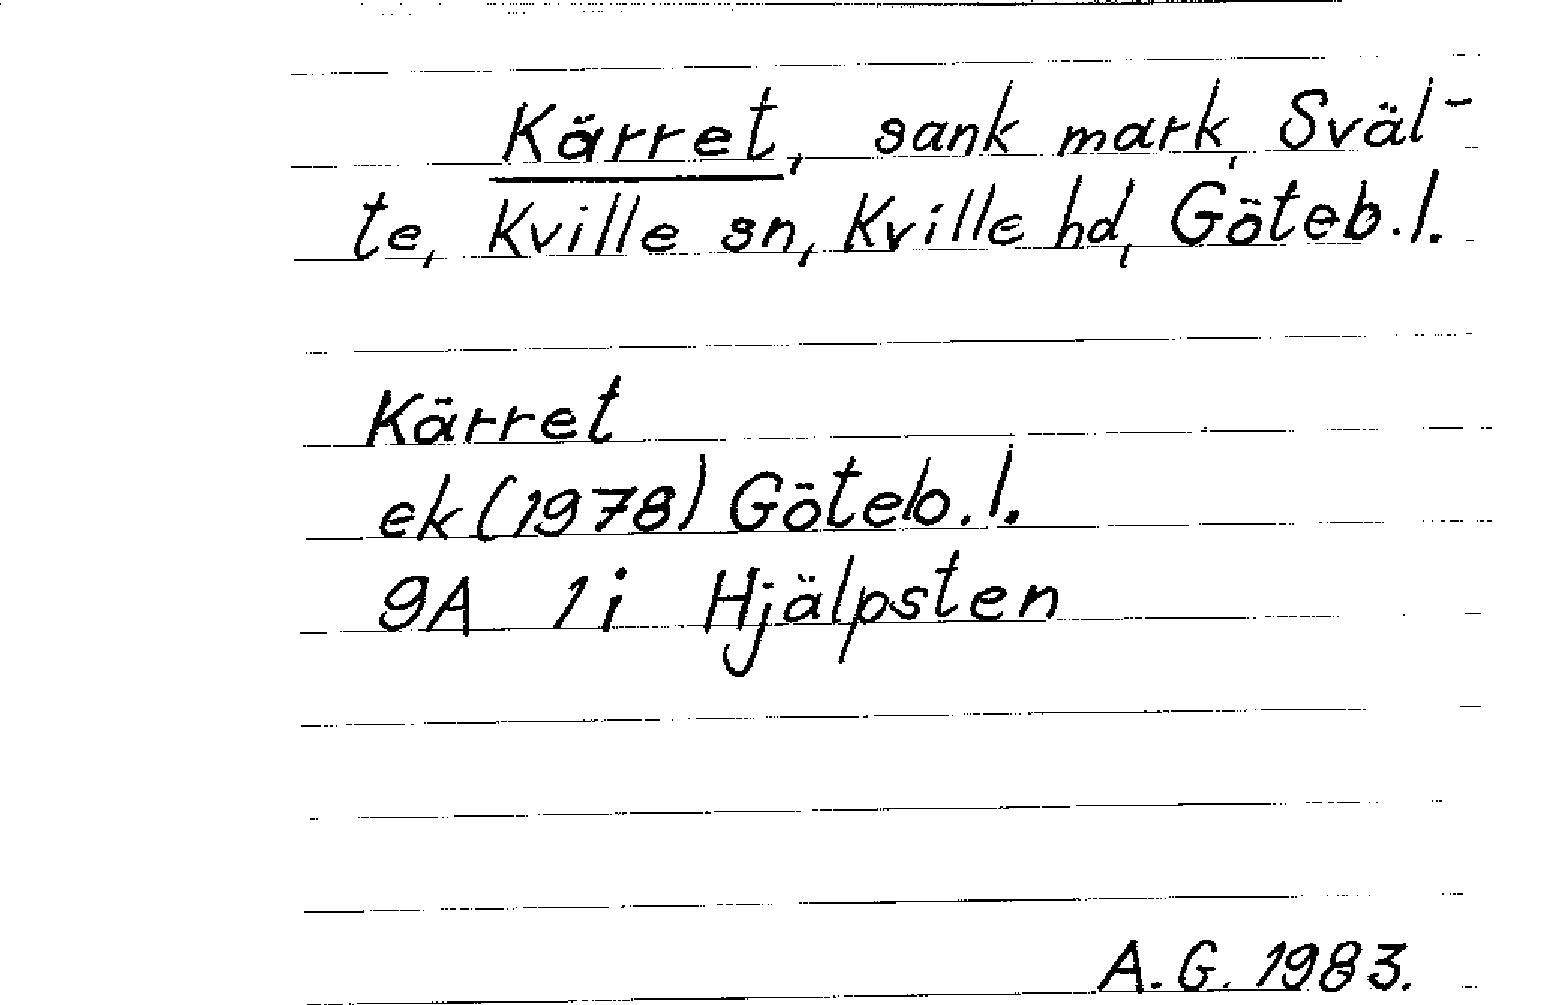 Kärret, sank mark, Sväl-
te, Kville sn, Kville hd, Göteb. l.
Kärret
ek (1978) Göteb. l.
9A 1i Hjälpsten
A. G. 1983.